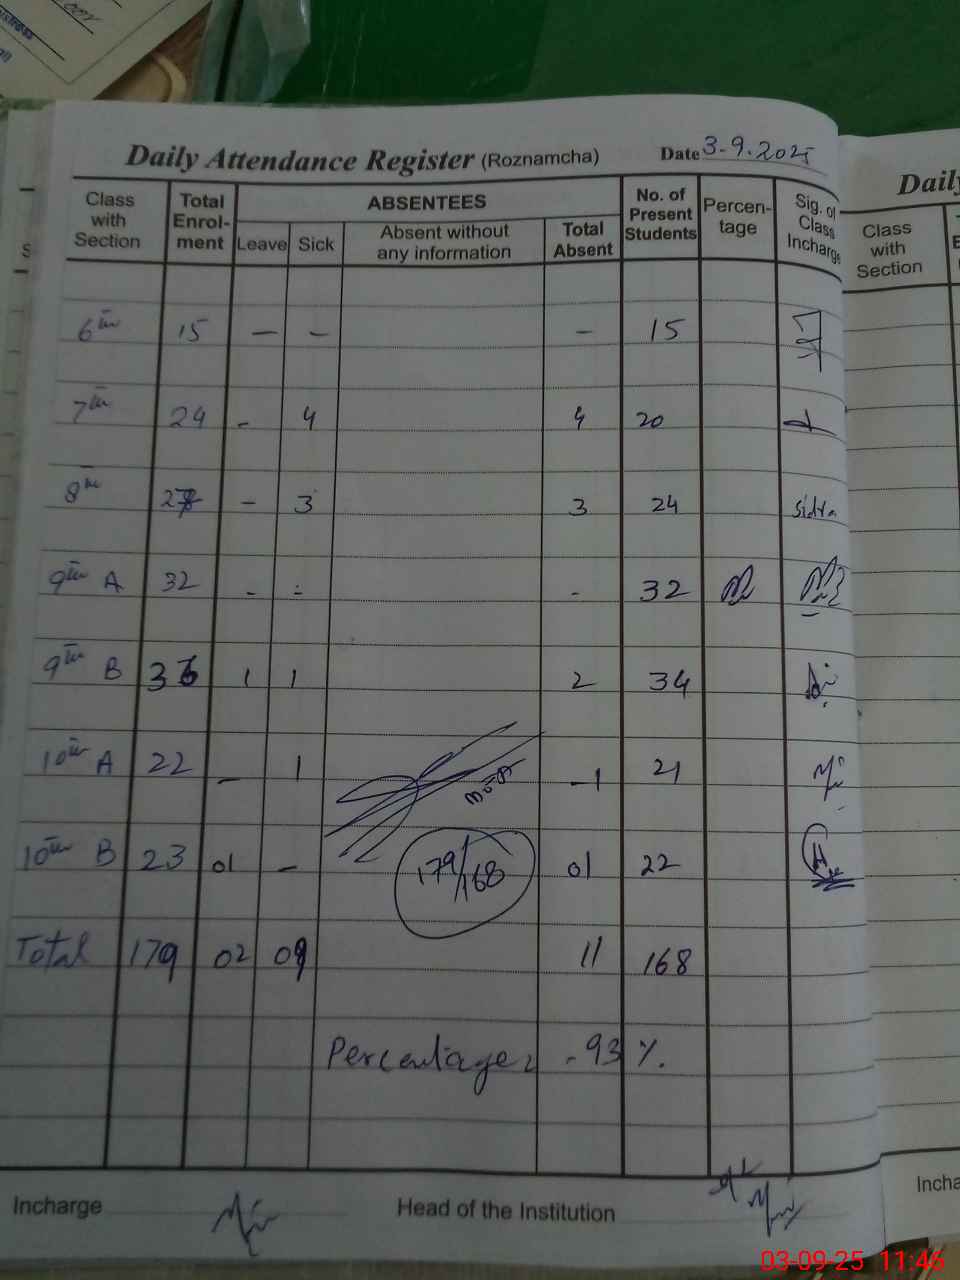 Daily Attendance Register (Roznamcha) Date 3-9.2025
Class with Section Total Enrol-ment ABSENTEES No. of Present Students Percen-tage Sig. of Class Incharge
Leave Sick Absent without any information Total Absent
6th 15 — – – 15
7th 24 - 4 4 20
8th 27 - 3 3 24 Sidra
9th A 32 - - - 32
9th B 36 1 1 2 34
10th A 22 – 1 –1 21
10th B 23 01 – 179/168 01 22
Total 179 02 09 11 168
Percentage: - 93 %.
Incharge Head of the Institution
Daily
Class with Section
Incha
03-09-25 11:46